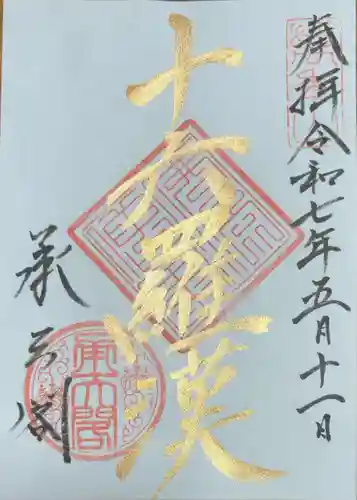 奉拝令和七年五月十一日
十六羅漢
承天閣